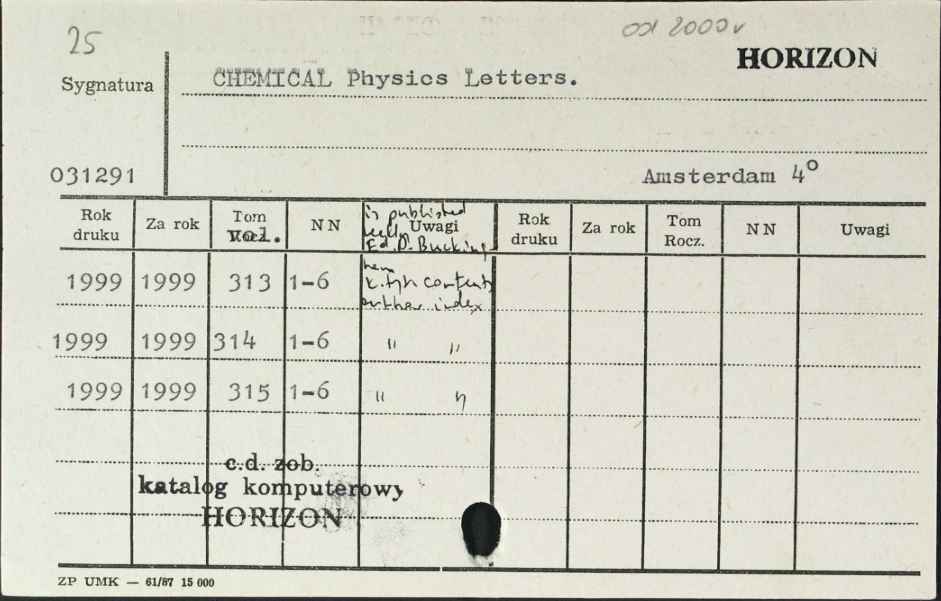 25
od 2000 r
HORIZON
Sygnatura
CHEMICAL Physics Letters.
031291
Amsterdam 4°
Rok druku Za rok Tom vol. NN Uwagi Rok druku Za rok Tom Rocz. NN Uwagi
is published
Ed. D. Bucking
ham
content
author index
1999 1999 313 1-6
1999 1999 314 1-6 " "
1999 1999 315 1-6 " "
c.d. zob.
katalog komputerowy
HORIZON
ZP UMK — 61/87 15 000